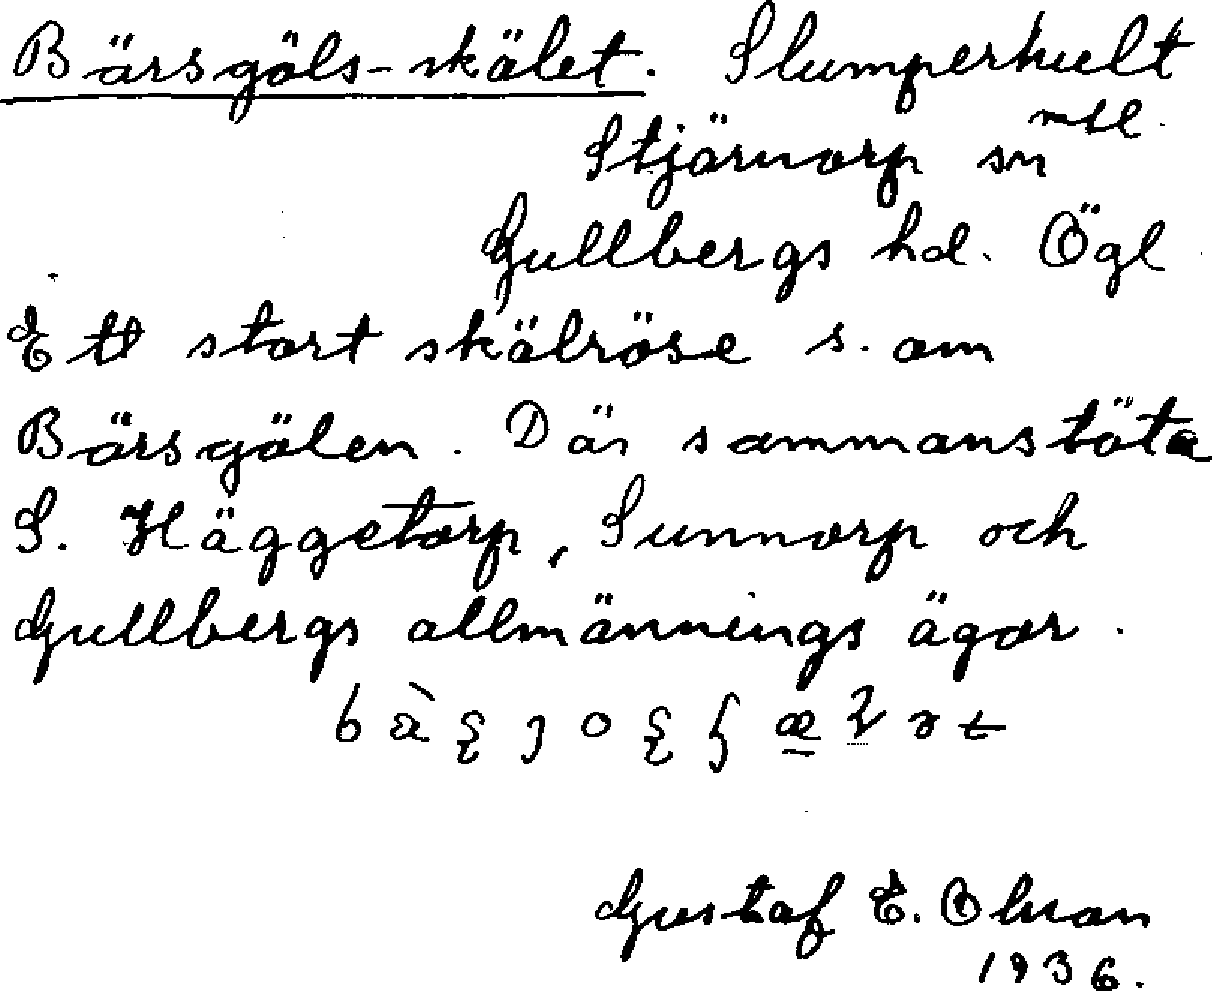 Bärsgöls-skälet. Slumperhult
mtl.
Stjärnorp sn
Gullbergs hd. Ögl
Ett stort skälröse s. om
Bärsgölen. Där sammanstöta
S. Häggetorp, Sunnorp och
Gullbergs allmännings ägor.
Gustaf E. Olsson
1936.